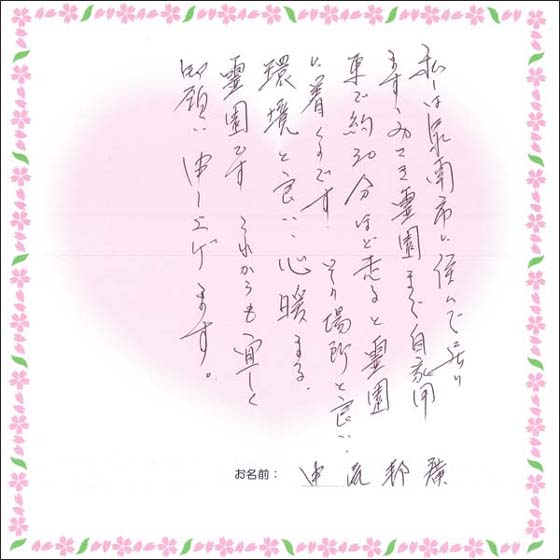 私は泉南市に住んで居り
ます、みさき霊園まで自家用
車で約30分ほど走ると霊園
に着くのです。その場所と良い、
環境と良い、心暖まる
霊園です これからも宜しく
御願い申し上げます。
お名前: